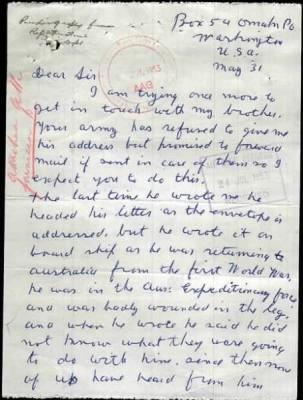 Box 54 Omak Po
Washington
U.S.a.
May 31
Dear Sir
I am trying one more to
get in touch with my brother.
Your army has refused to give me
his address but promised to forward
mail if sent in care of them so I
expect you to do this.
The last time he wrote me he
headed his letter as the envelope is
addressed, but he wrote it on
board ship as he was returning to
australia from the first World War.
he was in the aus. Expeditionary force
and was badly wounded in the leg.
and when he wrote he said he did
not know what they were going
to do with him. since then none
of us have heard from him
1953
AAG
24 JUL 1953